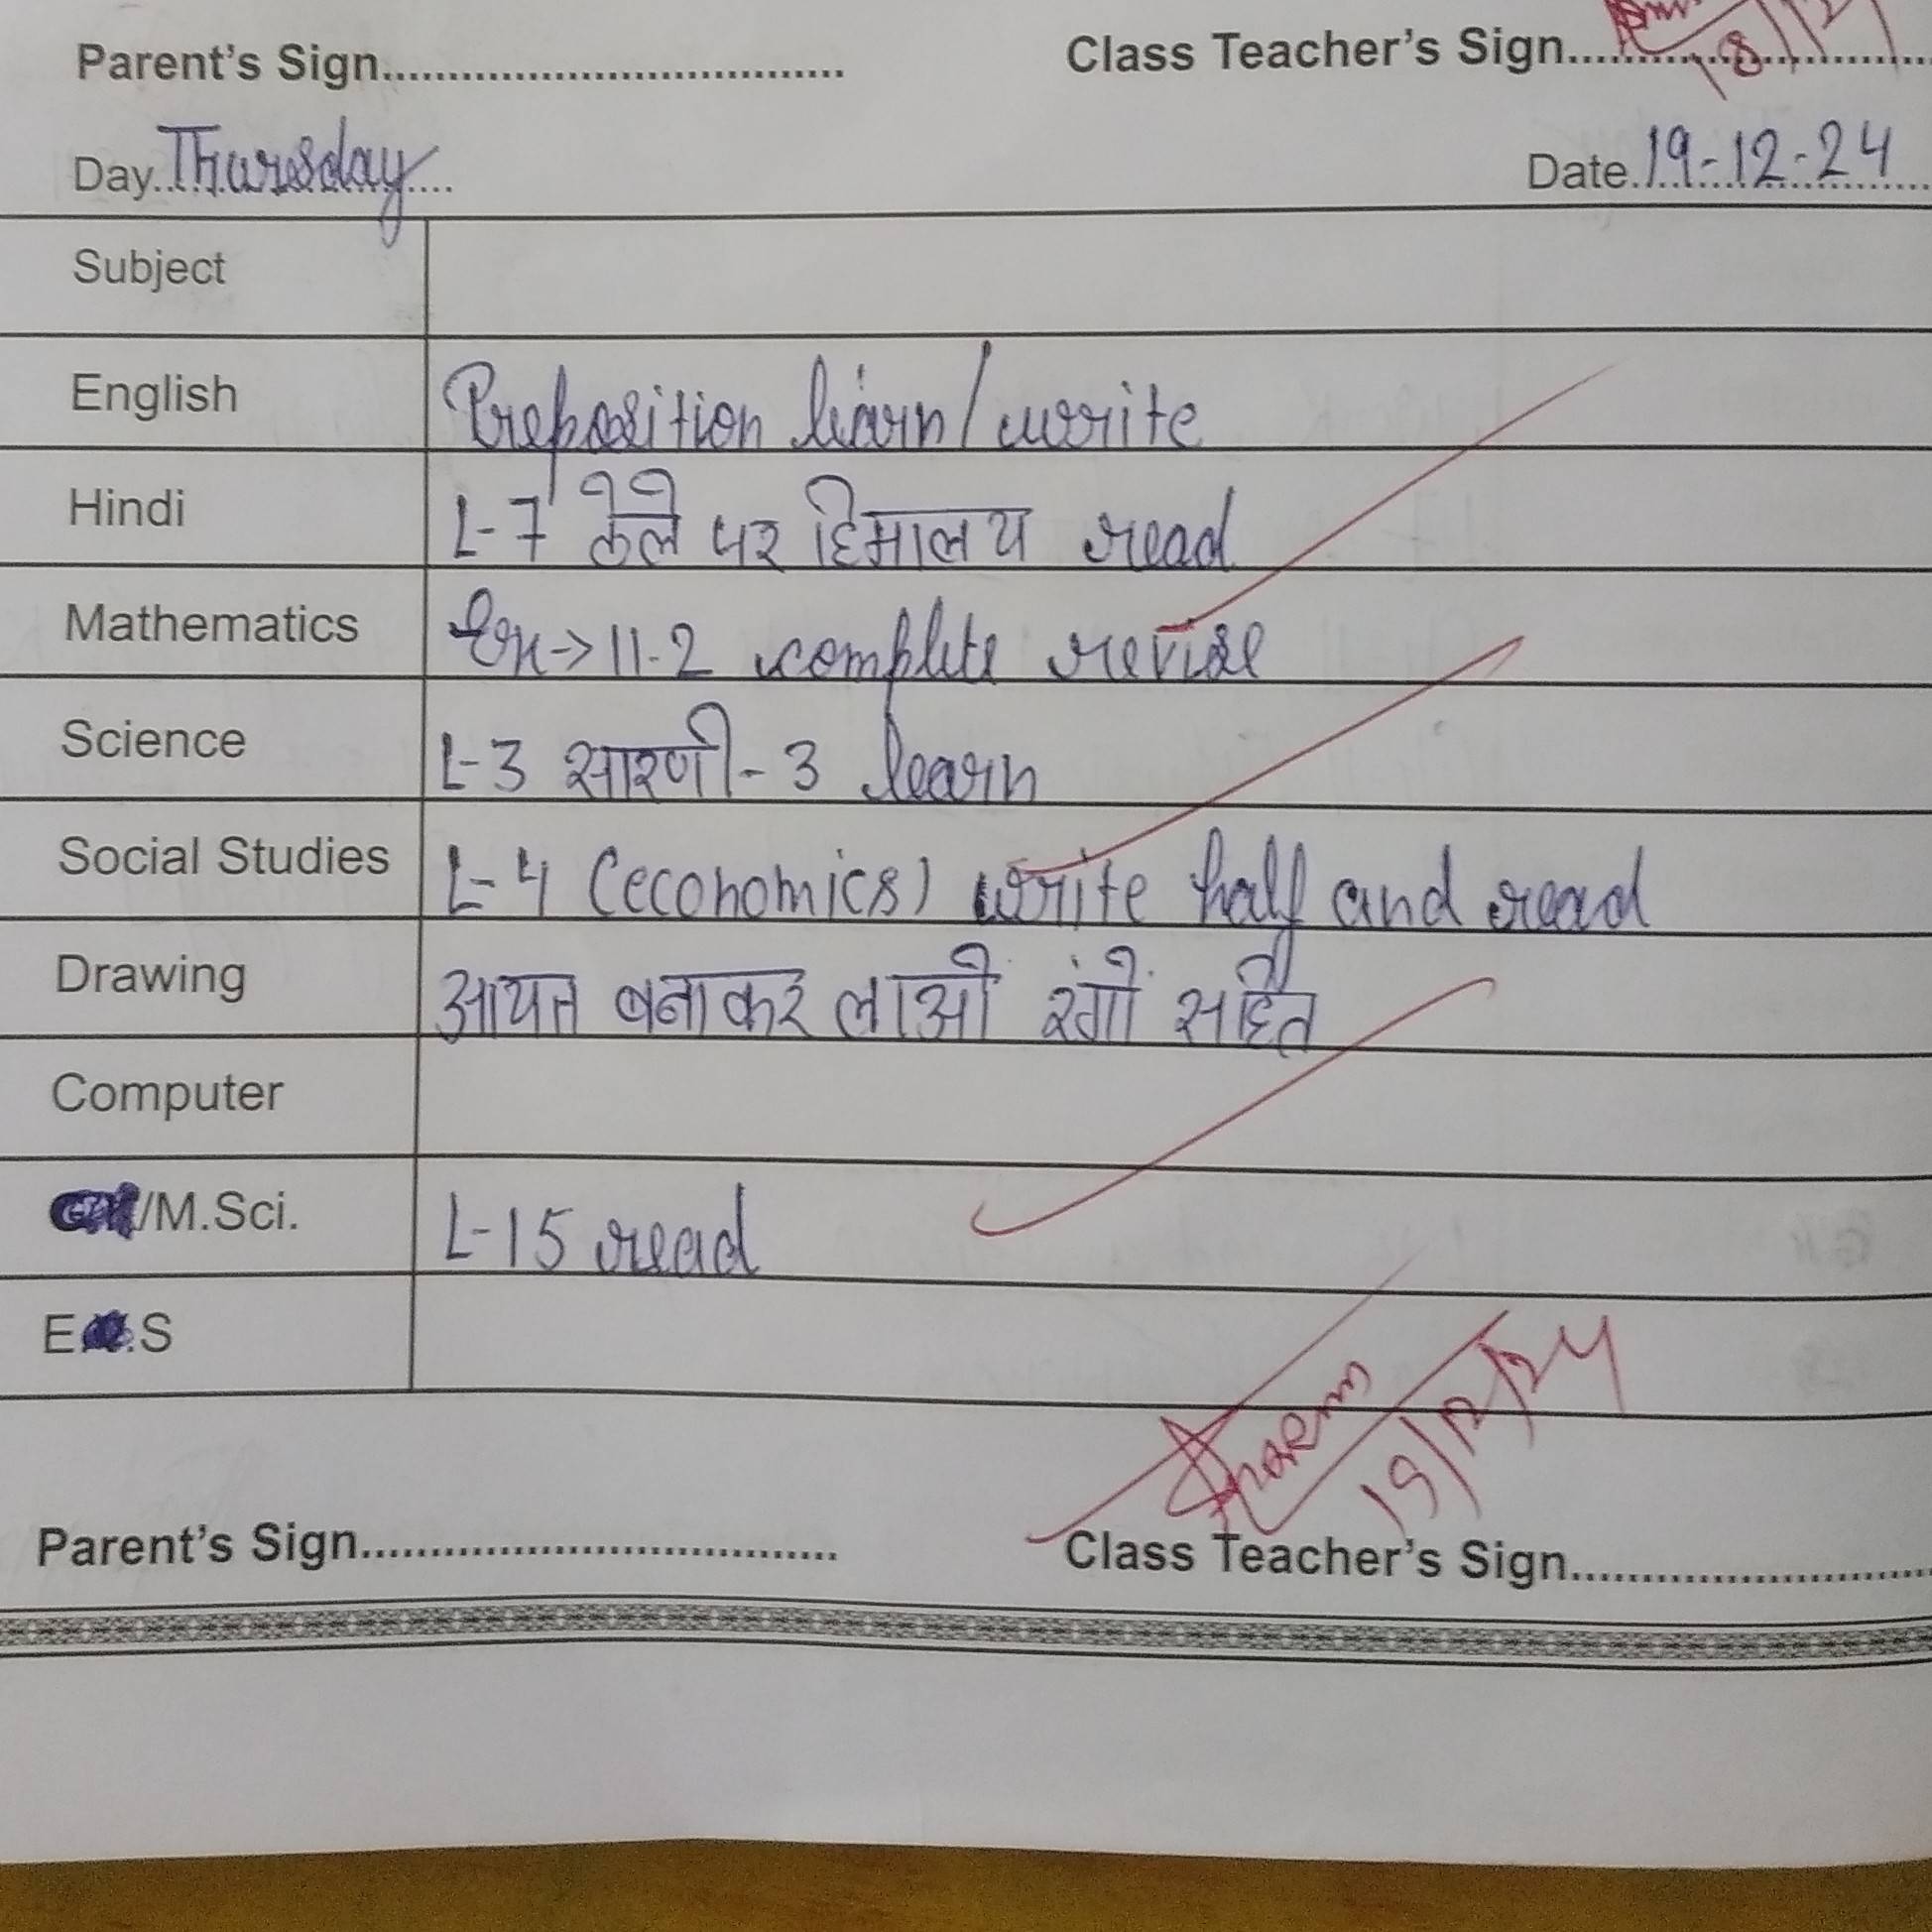 Parent's Sign.................................... Class Teacher's Sign............................
18/12/
Day..Thursday.... Date.19-12-24
Subject
English Preposition learn/write
Hindi L-7 ठेले पर हिमालय read
Mathematics Ex→11.2 complete revise
Science L-3 सारणी-3 learn
Social Studies L-4 (economics) write half and read
Drawing आयत बनाकर लाओ रंगों सहित
Computer
/M.Sci. L-15 read
E.S
19/12/24
Parent's Sign.................................... Class Teacher's Sign............................